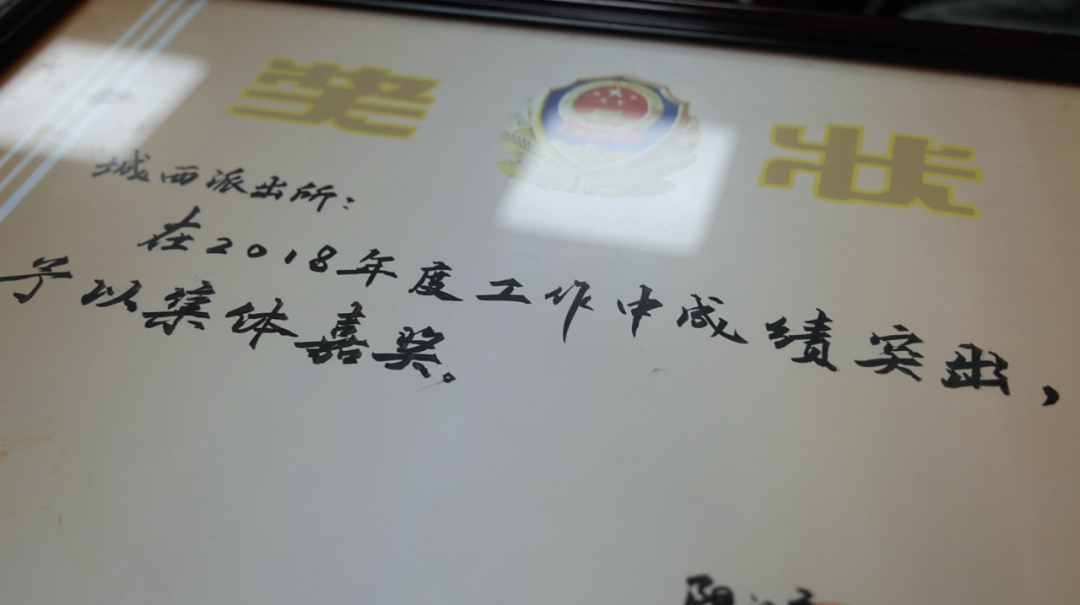 奖 状
城西派出所：
在2018年度工作中成绩突出，
予以集体嘉奖。
阳